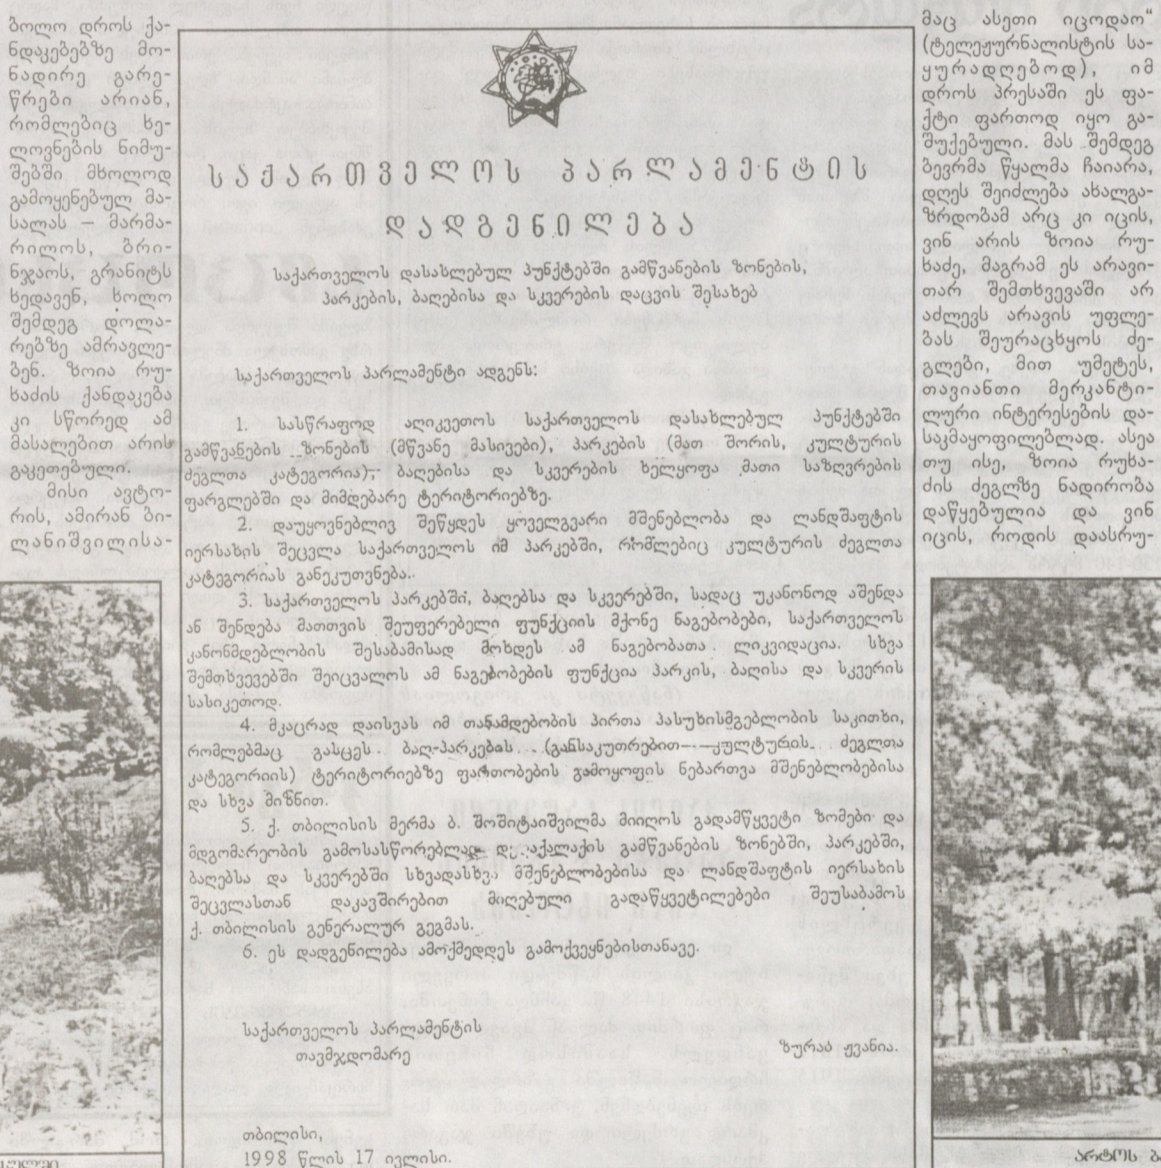 ბოლო დროს ქა-
ნდაკებებზე მო-
ნადირე გარე-
წრები არიან,
რომლებიც ხე-
ლოვნების ნიმუ-
შებში მხოლოდ
გამოყენებულ მა-
სალას — მარმა-
რილოს, ბრი-
ნჯაოს, გრანიტს
ხედავენ, ხოლო
შემდეგ დოლა-
რებზე ამრავლე-
ბენ. ზოია რუ-
ხაძის ქანდაკება
კი სწორედ ამ
მასალებით არის
გაკეთებული.
მისი ავტო-
რის, ამირან ბი-
ლანიშვილისა-
საქართველოს პარლამენტის
დადგენილება
საქართველოს დასახლებულ პუნქტებში გამწვანების ზონების,
პარკების, ბაღებისა და სკვერების დაცვის შესახებ
საქართველოს პარლამენტი ადგენს:
1. სასწრაფოდ აღიკვეთოს საქართველოს დასახლებულ პუნქტებში
გამწვანების ზონების (მწვანე მასივები), პარკების (მათ შორის, კულტურის
ძეგლთა კატეგორია), ბაღებისა და სკვერების ხელყოფა მათი საზღვრების
ფარგლებში და მიმდებარე ტერიტორიებზე.
2. დაუყოვნებლივ შეწყდეს ყოველგვარი მშენებლობა და ლანდშაფტის
იერსახის შეცვლა საქართველოს იმ პარკებში, რომლებიც კულტურის ძეგლთა
კატეგორიას განეკუთვნება.
3. საქართველოს პარკებში, ბაღებსა და სკვერებში, სადაც უკანონოდ აშენდა
ან შენდება მათთვის შეუფერებელი ფუნქციის მქონე ნაგებობები, საქართველოს
კანონმდებლობის შესაბამისად მოხდეს ამ ნაგებობათა ლიკვიდაცია. სხვა
შემთხვევებში შეიცვალოს ამ ნაგებობების ფუნქცია პარკის, ბაღისა და სკვერის
სასიკეთოდ.
4. მკაცრად დაისვას იმ თანამდებობის პირთა პასუხისმგებლობის საკითხი,
რომლებმაც გასცეს ბაღ-პარკების (განსაკუთრებით კულტურის ძეგლთა
კატეგორიის) ტერიტორიებზე ფართობების გამოყოფის ნებართვა მშენებლობებისა
და სხვა მიზნით.
5. ქ. თბილისის მერმა ბ. შოშიტაიშვილმა მიიღოს გადამწყვეტი ზომები და
მდგომარეობის გამოსასწორებლად დედაქალაქის გამწვანების ზონებში, პარკებში,
ბაღებსა და სკვერებში სხვადასხვა მშენებლობებისა და ლანდშაფტის იერსახის
შეცვლასთან დაკავშირებით მიღებული გადაწყვეტილებები შეუსაბამოს
ქ. თბილისის გენერალურ გეგმას.
6. ეს დადგენილება ამოქმედდეს გამოქვეყნებისთანავე.
საქართველოს პარლამენტის
თავმჯდომარე
ზურაბ ჟვანია.
თბილისი,
1998 წლის 17 ივლისი.
მაც ასეთი იცოდაო“
(ტელეჟურნალისტის სა-
ყურადღებოდ), იმ
დროს პრესაში ეს ფა-
ქტი ფართოდ იყო გა-
შუქებული. მას შემდეგ
ბევრმა წყალმა ჩაიარა,
დღეს შეიძლება ახალგა-
ზრდობამ არც კი იცის,
ვინ არის ზოია რუ-
ხაძე, მაგრამ ეს არავი-
თარ შემთხვევაში არ
აძლევს არავის უფლე-
ბას შეურაცხყოს ძე-
გლები, მით უმეტეს,
თავიანთი მერკანტი-
ლური ინტერესების და-
საკმაყოფილებლად. ასეა
თუ ისე, ზოია რუხა-
ძის ძეგლზე ნადირობა
დაწყებულია და ვინ
იცის, როდის დაასრუ-